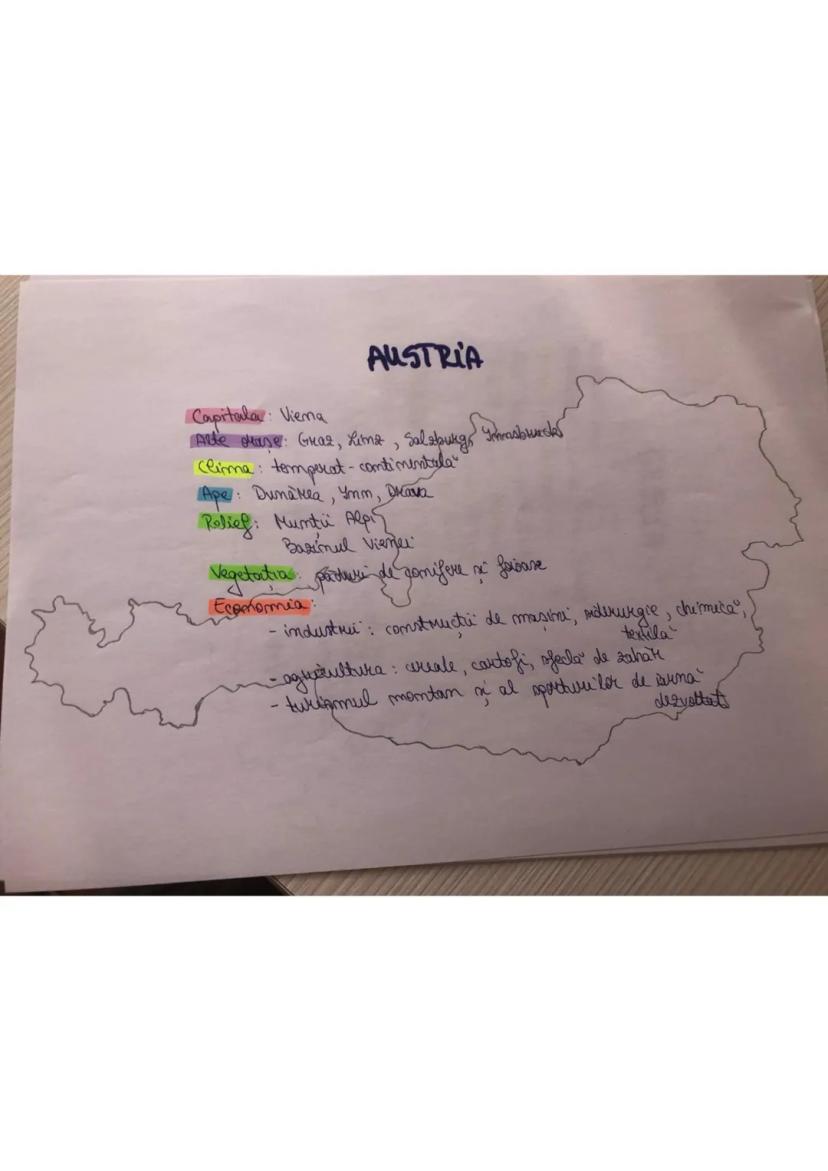 AUSTRIA
Capitala: Viena
Alte orașe: Graz, Linz, Salzburg, Innsbruck
Clima: temperat-continentală
Ape: Dunărea, Inn, Drava
Relief: Munții Alpi
Bazinul Vienei
Vegetația: păduri de conifere și foioase
Economia:
- industrii: construcții de mașini, siderurgie, chimică,
textilă
- agricultura: cereale, cartofi, sfeclă de zahăr
- turismul montan și al sporturilor de iarnă
dezvoltat